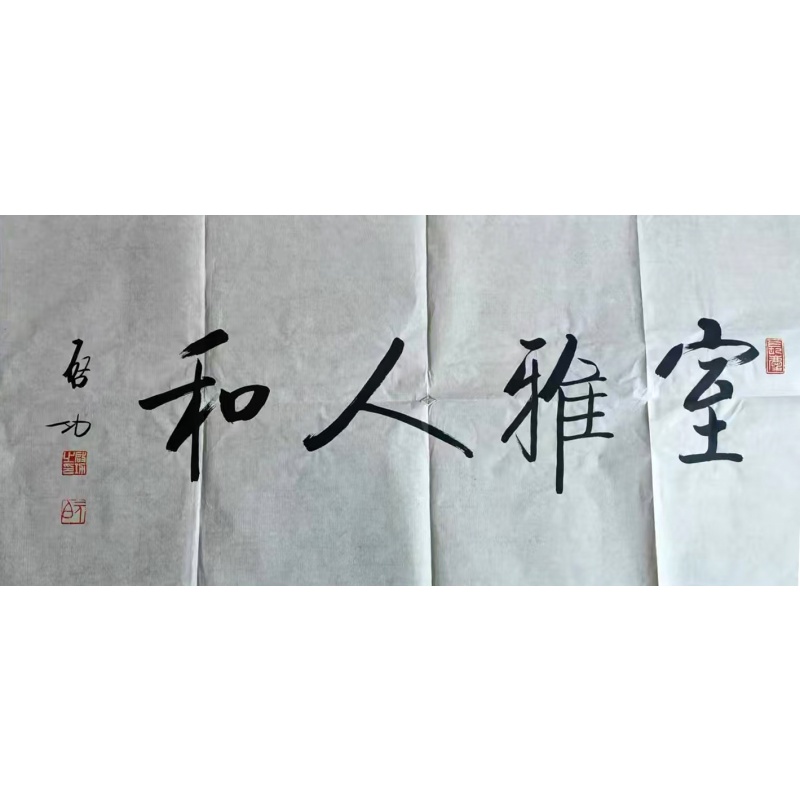 室雅人和
启功